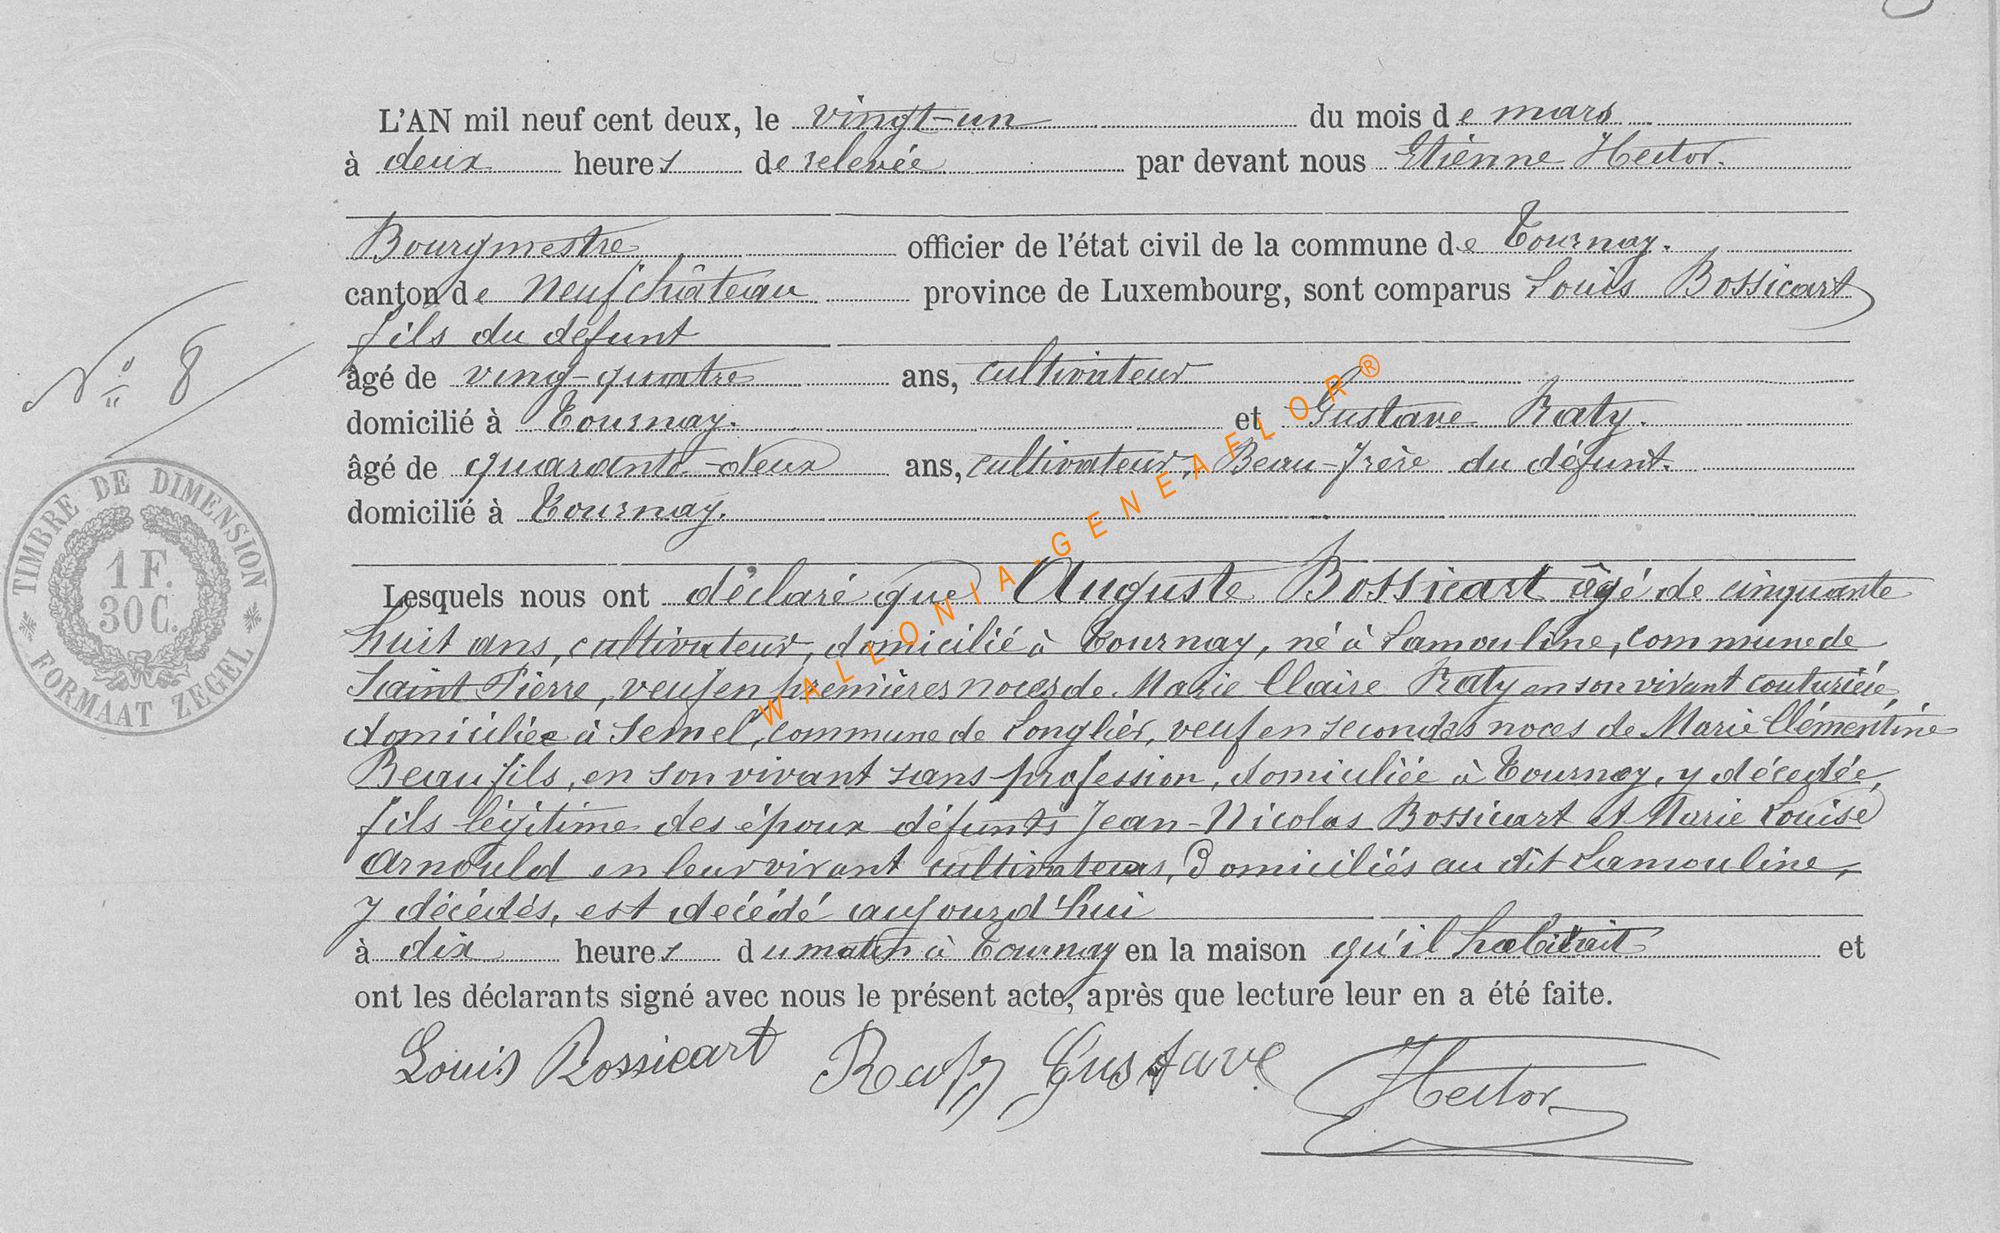 L'AN mil neuf cent deux, le vingt-un du mois de mars
à deux heures de relevée par devant nous Etienne Hector.
Bourgmestre officier de l'état civil de la commune de Tournay.
canton de Neufchâteau province de Luxembourg, sont comparus Louis Bossicart
fils du défunt
âgé de ving-quatre ans, cultivateur
domicilié à Tournay. et Gustave Raty.
âgé de quarante-deux ans, cultivateur, Beau-frère du défunt.
domicilié à Tournay.
Lesquels nous ont déclaré que Auguste Bossicart âgé de cinquante
huit ans, cultivateur, domicilié à Tournay, né à Lamouline, commune de
Saint Pierre, veuf en premières noces de Marie Claire Raty en son vivant couturière
domiciliée à Semel, commune de Longlier, veuf en secondes noces de Marie Clémentine
Beaufils, en son vivant sans profession, domiciliée à Tournay, y décédée,
fils légitime des époux défunts Jean-Nicolas Bossicart et Marie Louise
Arnould en leur vivant cultivateurs, Domiciliés au dit Lamouline,
y décédés, est décédé aujourd'hui
à dix heures du matin à Tournay en la maison qu'il habitait et
ont les déclarants signé avec nous le présent acte, après que lecture leur en a été faite.
Louis Bossicart Raty Gustave Hector
N° 8
TIMBRE DE DIMENSION
1 F.
30 C.
FORMAAT ZEGEL
WALLONIA-GENEAFLOR®